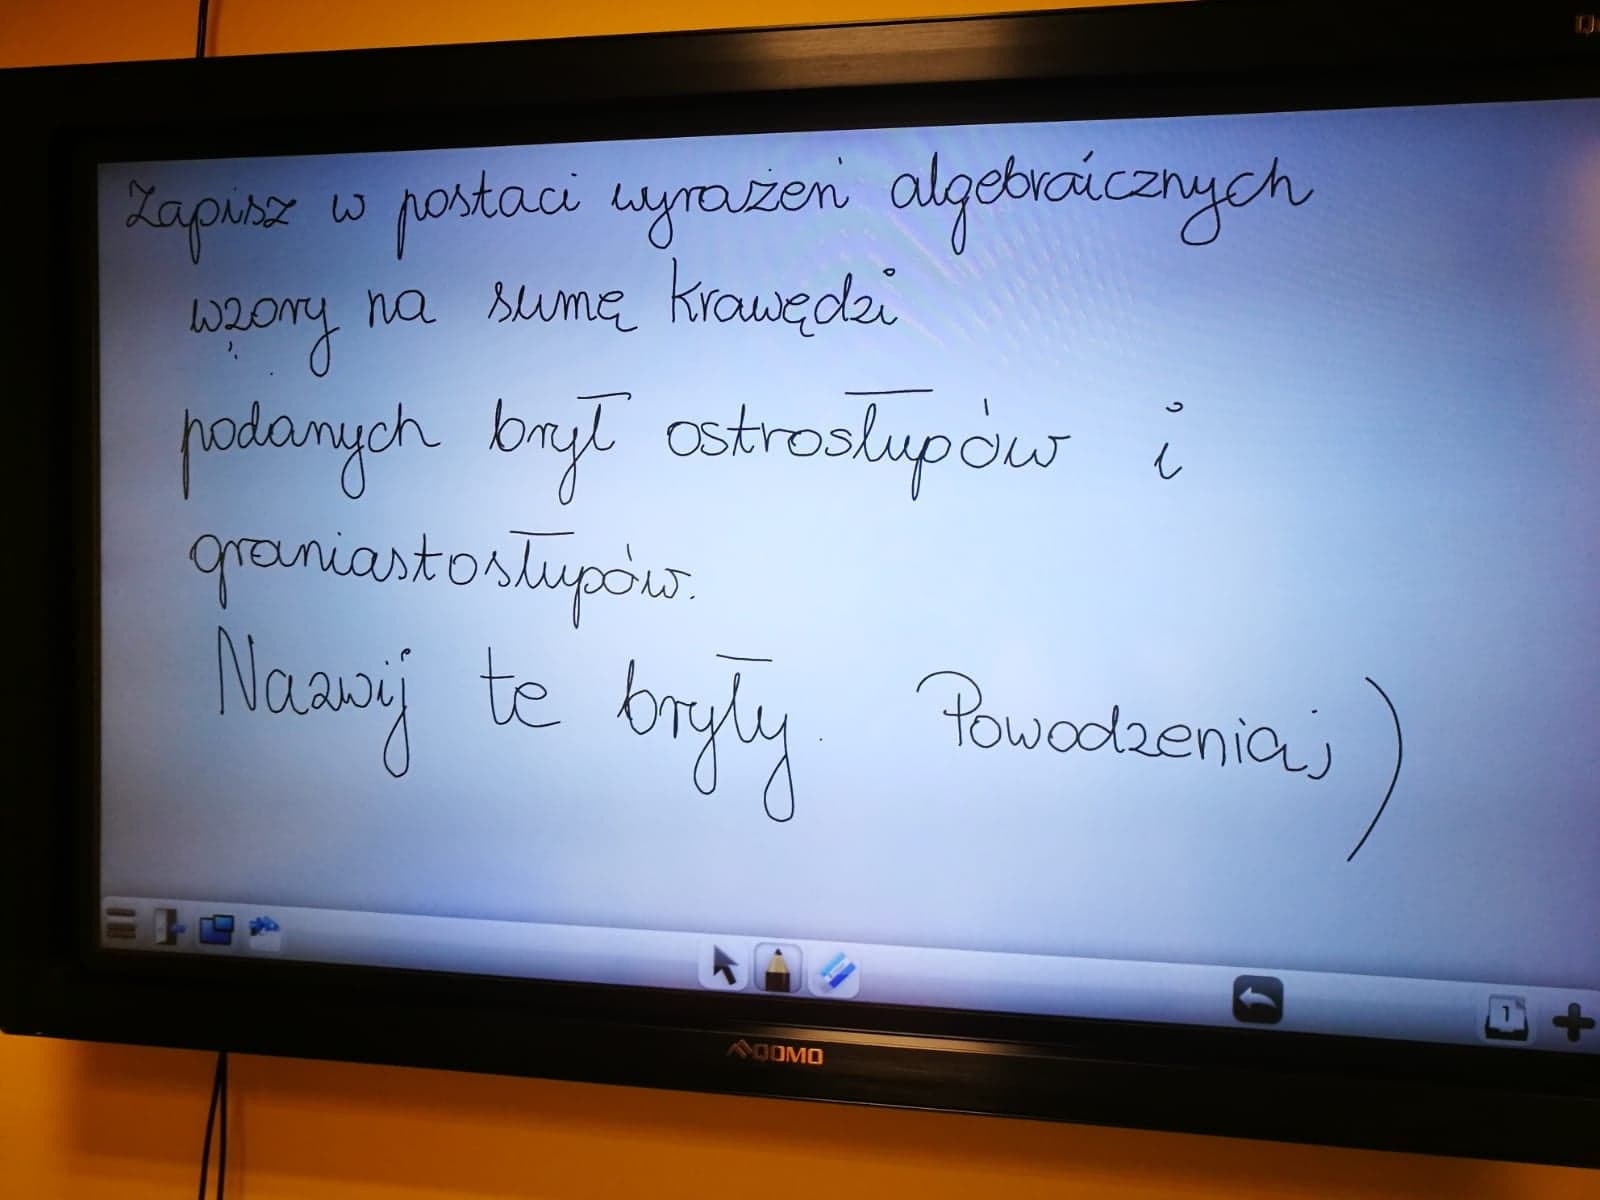 Zapisz w postaci wyrażeń algebraicznych
wzory na sumę krawędzi
podanych brył ostrosłupów i
graniastosłupów.
Nazwij te bryły. Powodzenia ;)
1
QOMO